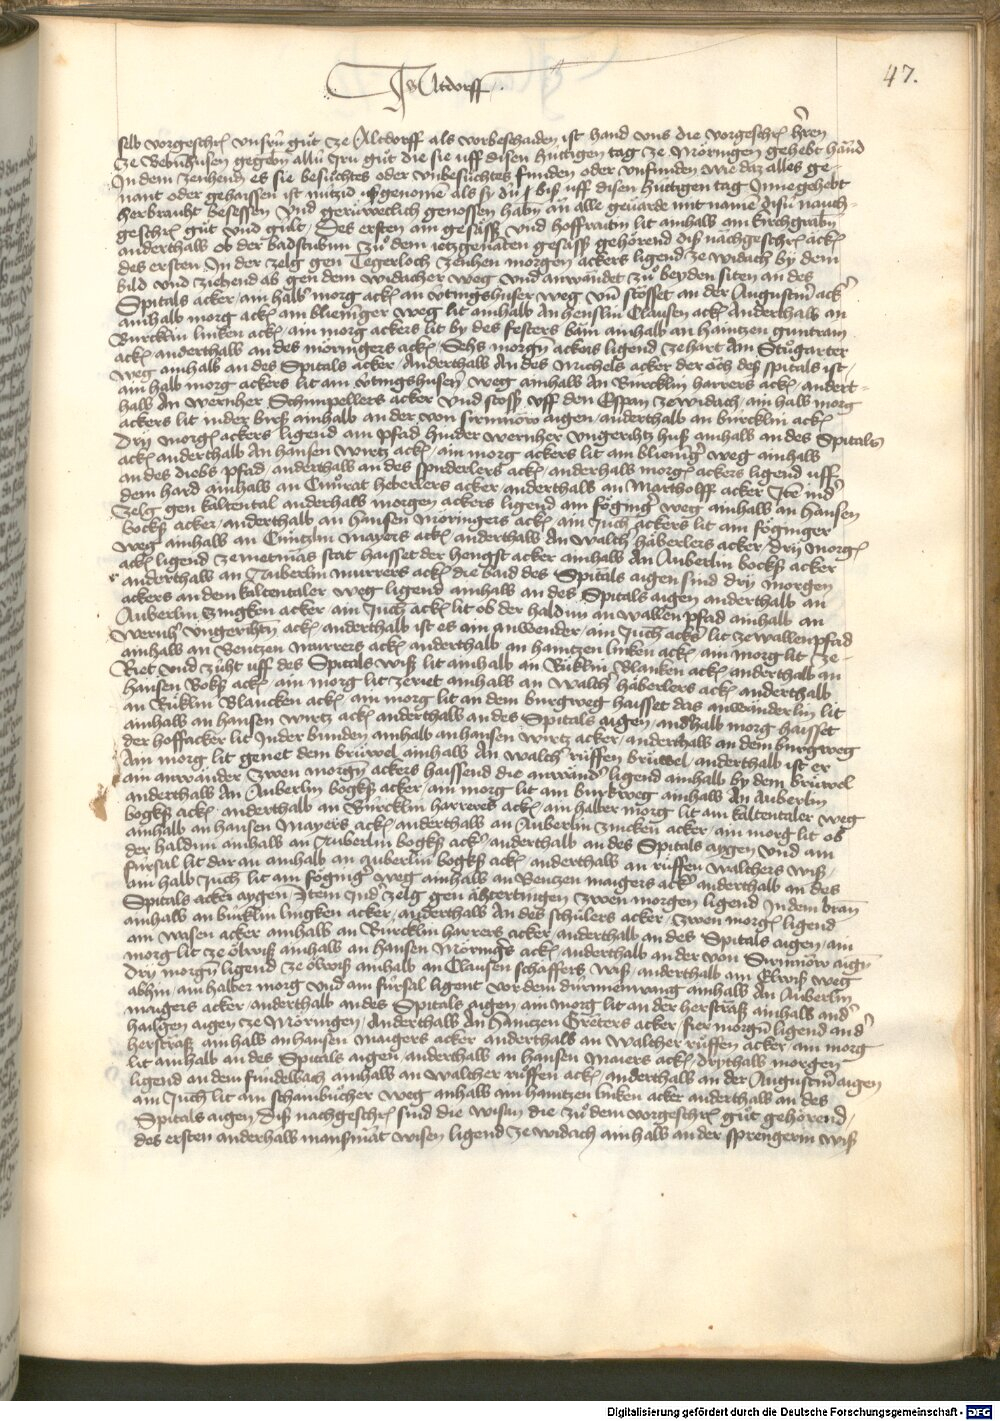 Altdorff
47.
selb vorgeschrn unsrn gůt ze Altdorff als vorbeschaiden ist hand uns die vorgeschrn hren
ze Bebenhusen gegebn allů Iru gůt die sie uff disen hůttigen tag ze Möringen gehebt hand
In dem zenhend es sie besůchtes oder unbesůchtes funden oder unfunden wie daz alles ge¬
nant oder gehaissen ist nutzid usgenomen als sy dů biß uff disen hůttigen tag Innegehebt
herbraucht besessen und gerůweclich genossen habn ân alle geuarde mit name disů nauch¬
geschrn gůt und gůlt / Des ersten ain gesäß und hoffraitin lit ainhalb am kirchgrabn
anderthalb ob der badstubun zů dem ietzgenaten gesäß gehörend diß nachgeschrn äck
des ersten In der zelg gen Tegerloch zenhen morgen ackers ligend ze widach by dem
bild und ziehend ab gen dem widacher weg und anwandet zů beyden siten an des
Spitals acker / ain halb morg ack an öttingshuser weg un stosset an der Augustinr ack
ainhalb morg ack am blieninger weg lit ainhalb an henslin Clausen ack anderthalb an
Bůrcklin linken ack / ain morg ackers lit by des festers bam ainhalb an haintzen guntram
ack anderthalb an des möringers ack / Sehs morgn ackers ligend ze hart am Stůgarter
weg ainhalb an des Spitals acker / Anderthalb An des Michels acker der öch des spitals ist
ain halb morg ackers lit am öttingshusen weg ainhalb An Bůrcklin harrers ack / andert¬
halb An wernher Schimpellers acker und stoss uff den Espan ze widach / ain halb morg
ackers lit in der birß ainhalb an der von sirmnöw aigen / anderthalb an bůrcklin ack
Dry morgn ackers ligend am pfad hinder wernher ungerihtz huß ainhalb an des Spitals
ack anderthalb An hansen wirtz ack / ain morg ackers lit am blieningr weg ainhalb
an des diebs pfad / anderthalb an des spiederlers ack / anderhalb morgn ackers ligend uff
dem hard ainhalb an Cůnrat heberlers acker / anderthalb an Martholff acker Ite ind
zelg gen kaltental anderhalb morgen ackers ligend am föginger weg ainhalb an hansen
bocks acker / anderthalb an hansen möringers ack / ain Juch ackers lit am föginger
weg ainhalb an Cůntzlin mayers ack / anderthalb An walth häberlers acker / drij morgn
ack ligend ze metmas stat haisset der hengst acker ainhalb An Auberlin bocks acker
anderthalb an Auberlin murrers ack die baid des Spitals aigen sind drij morgen
ackers an dem kaltentaler weg ligend ainhalb an des Spitals aigen anderthalb an
Auberlin zingken acker / ain Juch ack lit ob der haldun an wallen pfad ainhalb an
wernhr ungerihtn ack / anderthalb ist es ain anwender / ain Juch ackrs lit ze wallenpfad
ainhalb an Bentzen murrers ack anderthalb an haintzen linken ack / ain morg lit ze
Riet und zůht uff des Spitals wiß lit ainhalb an Růklin Blanken ack / anderthalb an
hansen Boks ack / ain morg lit ze riet ainhalb an walth häberlers ack anderthalb
an Růklin Blancken ack / ain morg lit an dem burgweg haisset das anwänderlin lit
ainhalb an hansen wirtz ack / anderthalb an des Spitals aigen / andhalb morg haisset
der hoffacker lit In der bůnden ainhalb an hansen wirtz acker / anderthalb an dem burgweg
Ain morg lit genet dem brůwel ainhalb An walthr růssen brůwel / anderthalb ist er
ain anwander zwen morgn ackers haissend die anwand ligend ainhalb by dem brůwel
anderthalb An Auberlin bogks acker / ain morg lit am burkweg ainhalb An Auberlin
bogks ack / anderthalb an Bůrcklin harrers ack / ain halber morg lit am kaltentaler weg
ainhalb an hansen mayers ack / anderthalb an Auberlin zincken acker / ain morg lit ob
der haldun ainhalb an Auberlin bogks ack / anderthalb an des Spitals aygen und ain
fursal lit dar an ainhalb an auberlin bogks ack / anderthalb an růssen walthers wiß /
ain halb Juch lit am föginger weg ainhalb an Bentzen maigers ack anderthalb an des
Spitals acker aygen / Item Ind zelg gen ähtertingen zwen morgen ligend In dem bran
ainhalb an bůrklin lingken acker / anderthalb An des schůlers acker / zwen morgn ligend
am wasen acker ainhalb an Bůrcklin harrers acker / anderthalb an des Spitals aigen / ain
morg lit ze ölwiß ainhalb an hansen Möringers ack / anderthalb an der von Sirmnöw aign
Dry morgn ligend ze ölwiß ainhalb an Clausen schaffers wiß / anderthalb am Elwiß weg
abhin / ain halber morg und ain fursal ligent vor dem důrmenwang ainhalb An Auberlin
maigers acker / anderthalb an des Spitals aigen ain morg lit an der herstraß ainhalb and
hailgen aigen ze Möringen / Anderthalb An haintzen Greters acker / fier morgn ligend and
herstraß ainhalb an hansen maigers acker anderthalb an walther růssen acker / ain morg
lit ainhalb an des Spitals aigen / anderthalb an hansen maiers ack / drythalb morgen
ligend an dem fundelbach ainhalb an walther růssen ack / anderthalb an der Augustinr aigen
ain Juch lit am schainbůcher weg anhalb am haintzen linken acker anderthalb an des
Spitals aigen / Diß nachgeschrn sind die wisan die zů dem vorgeschrn gůt gehörend /
des ersten anderhalb mansmat wisen ligend ze widach ainhalb an der sprengerin wiß
Digitalisierung gefördert durch die Deutsche Forschungsgemeinschaft - DFG